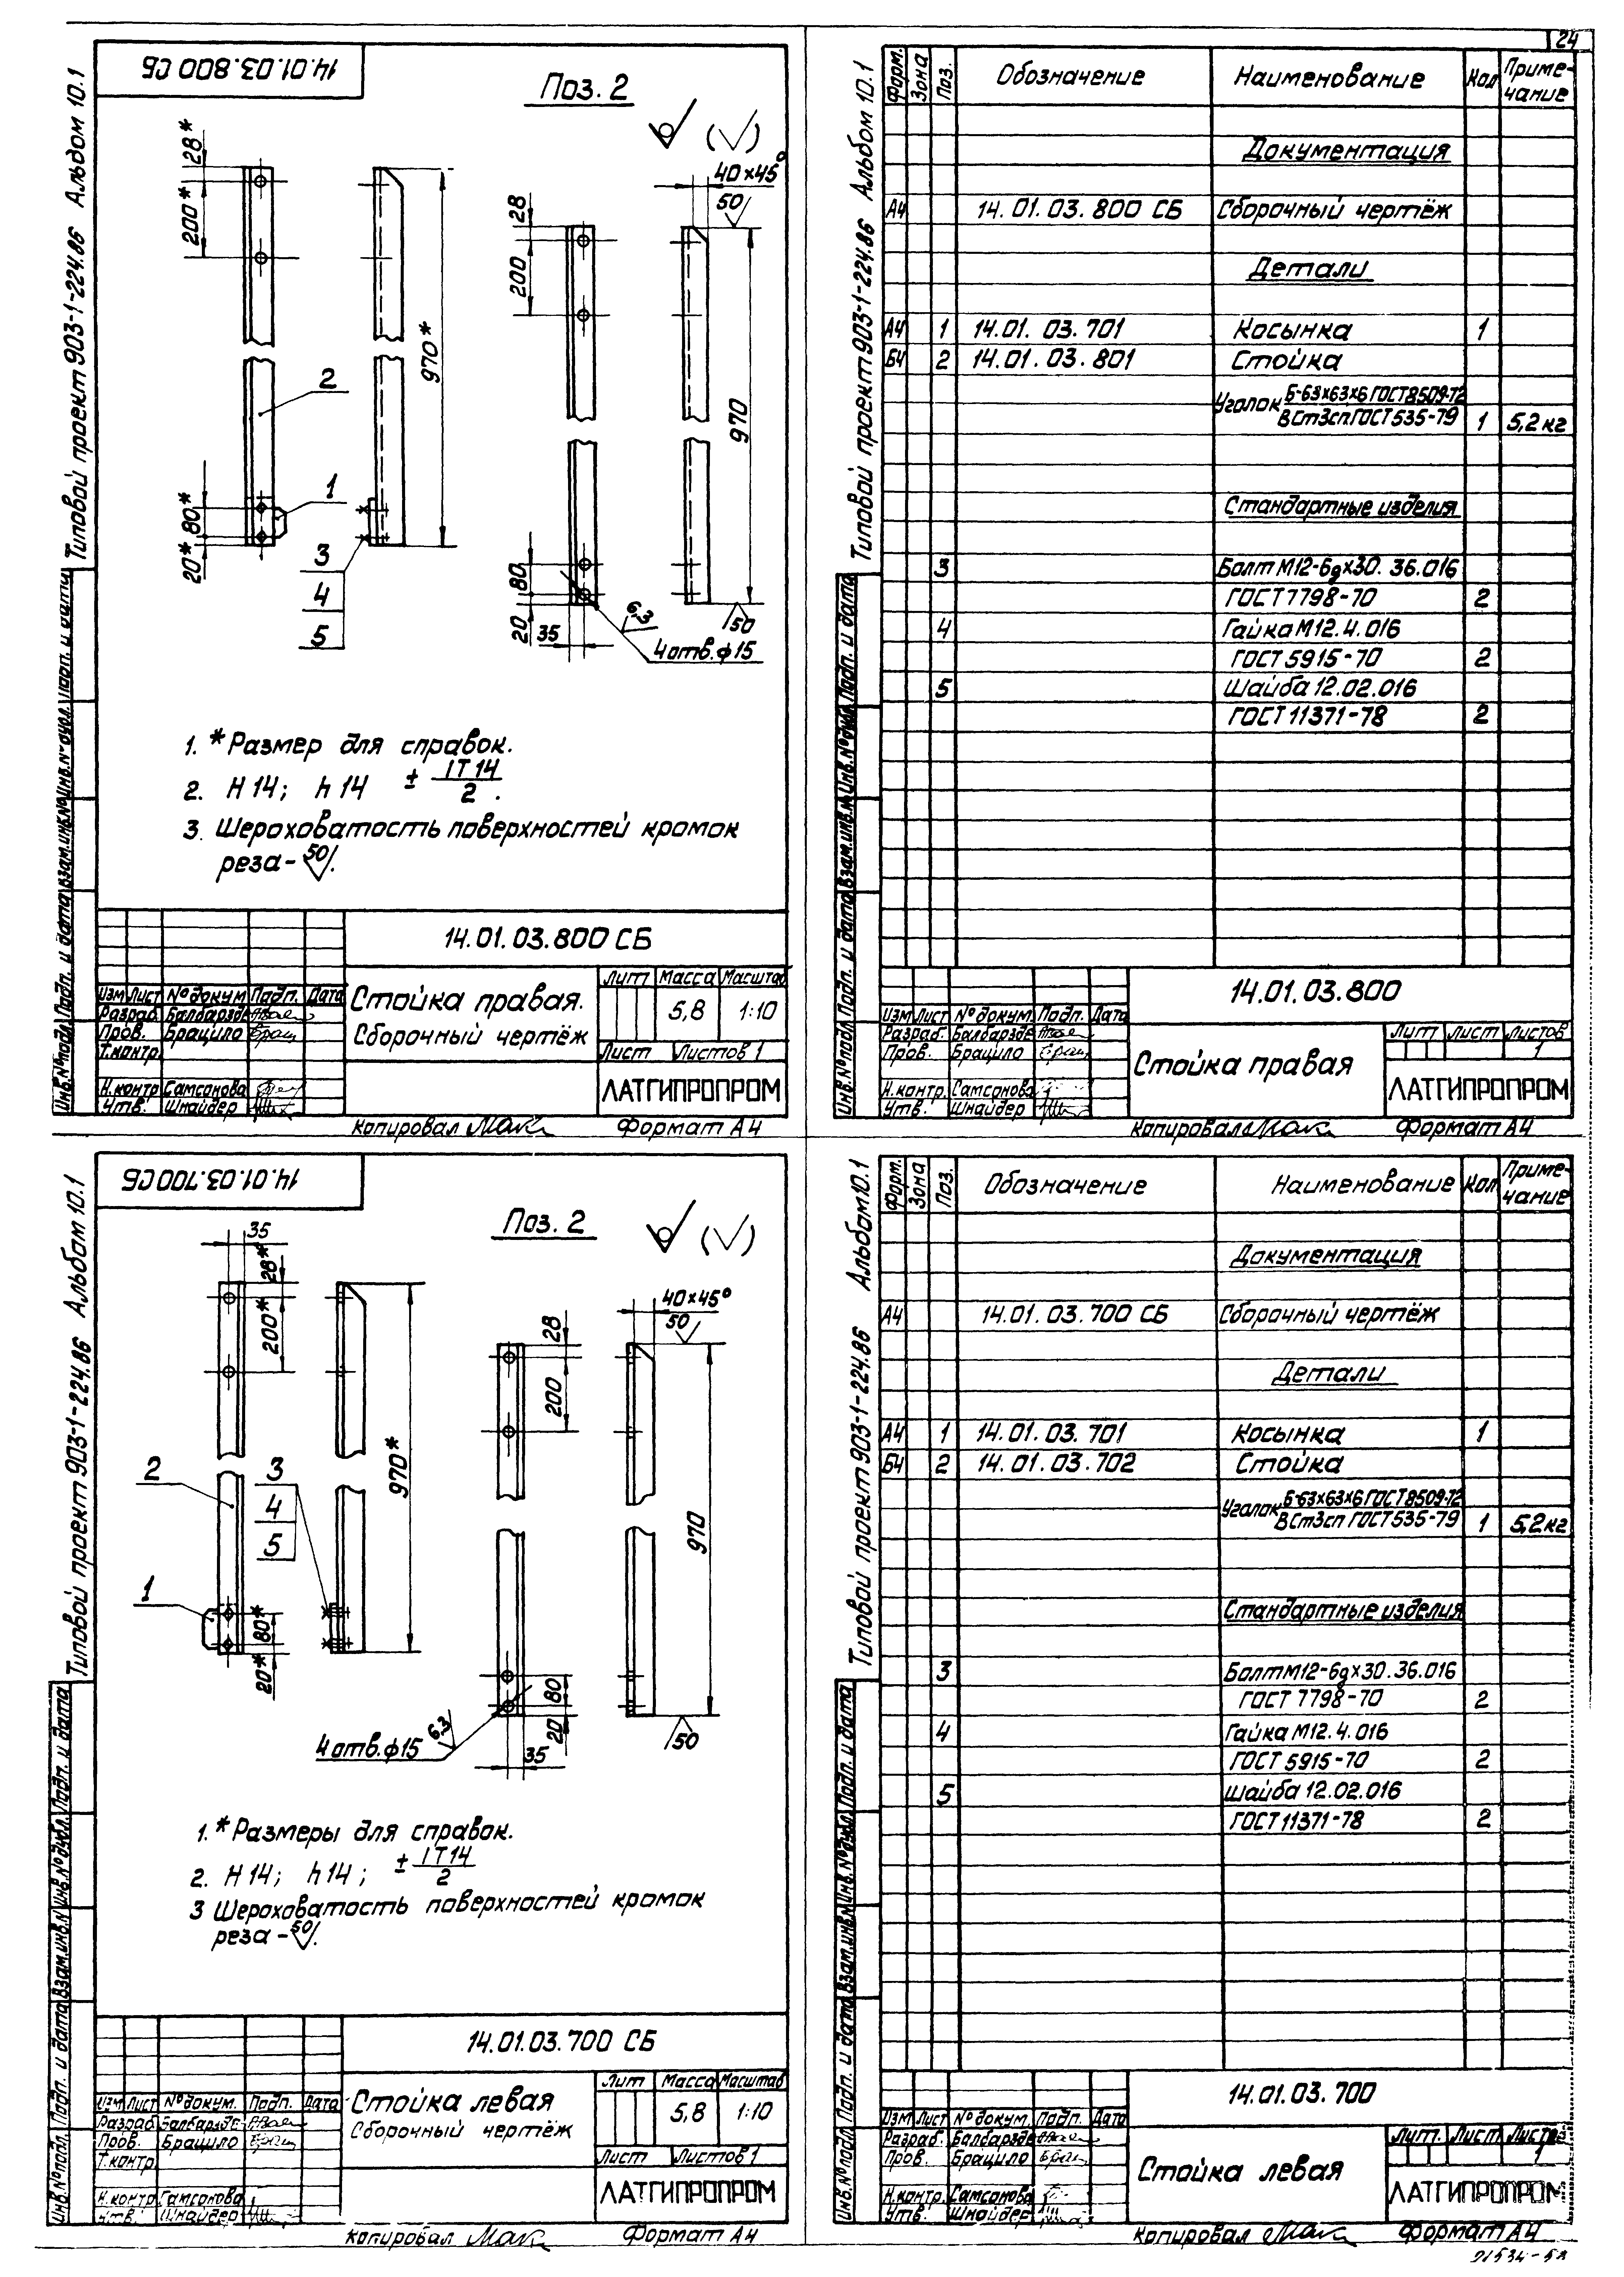 24
14.01.03.800 СБ
Типовой проект 903-1-224.86 Альбом 10.1
Поз. 2
28*
200*
970*
2
1
80*
20*
3
4
5
28
200
40×45°
50
970
80
20
35
6,3
4 отв. ф15
50
1. *Размер для справок.
2. Н14; h14 ± IT14/2.
3. Шероховатость поверхностей кромок
реза - 50.
14.01.03.800 СБ
Стойка правая.
Сборочный чертёж
Лит Масса Масштаб
5,8 1:10
Лист Листов 1
ЛАТГИПРОПРОМ
Изм Лист № докум Подп. Дата
Разраб. Балбарзде
Пров. Брацило
Т.контр.
Н.контр. Самсонова
Утв. Шнайдер
Инв.№ подл. Подп. и дата Взам.инв.№ Инв.№ дубл. Подп. и дата
Копировал Формат А4
Типовой проект 903-1-224.86 Альбом 10.1
Форм. Зона Поз. Обозначение Наименование Кол Приме-
чание
Документация
А4 14.01.03.800 СБ Сборочный чертёж
Детали
А4 1 14.01.03.701 Косынка 1
Б4 2 14.01.03.801 Стойка
Уголок Б-63×63×6 ГОСТ 8509-72
ВСт3сп ГОСТ 535-79 1 5,2 кг
Стандартные изделия
3 Болт М12-6g×30.36.016
ГОСТ 7798-70 2
4 Гайка М12.4.016
ГОСТ 5915-70 2
5 Шайба 12.02.016
ГОСТ 11371-78 2
14.01.03.800
Изм Лист № докум. Подп. Дата
Разраб. Балбарзде
Пров. Брацило
Н.контр. Самсонова
Утв. Шнайдер
Стойка правая
Лит Лист Листов
1
ЛАТГИПРОПРОМ
Инв.№ подл. Подп. и дата Взам.инв.№ Инв.№ дубл. Подп. и дата
Копировал Формат А4
14.01.03.700 СБ
Типовой проект 903-1-224.86 Альбом 10.1
Поз. 2
35
28*
200*
970*
2
3
4
5
1
80*
20*
40×45°
50
28
200
970
80
20
6,3
4 отв. ф15
35
50
1. *Размеры для справок.
2. Н14; h14; ± IT14/2
3 Шероховатость поверхностей кромок
реза - 50.
14.01.03.700 СБ
Стойка левая
Сборочный чертёж
Лит Масса Масштаб
5,8 1:10
Лист Листов 1
ЛАТГИПРОПРОМ
Изм Лист № докум. Подп. Дата
Разраб. Балбарзде
Пров. Брацило
Т.контр.
Н.контр. Самсонова
Утв. Шнайдер
Инв.№ подл. Подп. и дата Взам.инв.№ Инв.№ дубл. Подп. и дата
Копировал Формат А4
Типовой проект 903-1-224.86 Альбом 10.1
Форм. Зона Поз. Обозначение Наименование Кол Приме-
чание
Документация
А4 14.01.03.700 СБ Сборочный чертёж
Детали
А4 1 14.01.03.701 Косынка 1
Б4 2 14.01.03.702 Стойка
Уголок Б-63×63×6 ГОСТ 8509-72
ВСт3сп ГОСТ 535-79 1 5,2 кг
Стандартные изделия
3 Болт М12-6g×30.36.016
ГОСТ 7798-70 2
4 Гайка М12.4.016
ГОСТ 5915-70 2
5 Шайба 12.02.016
ГОСТ 11371-78 2
14.01.03.700
Изм Лист № докум. Подп. Дата
Разраб. Балбарзде
Пров. Брацило
Н.контр. Самсонова
Утв. Шнайдер
Стойка левая
Лит. Лист Листов
1
ЛАТГИПРОПРОМ
Инв.№ подл. Подп. и дата Взам.инв.№ Инв.№ дубл. Подп. и дата
Копировал Формат А4